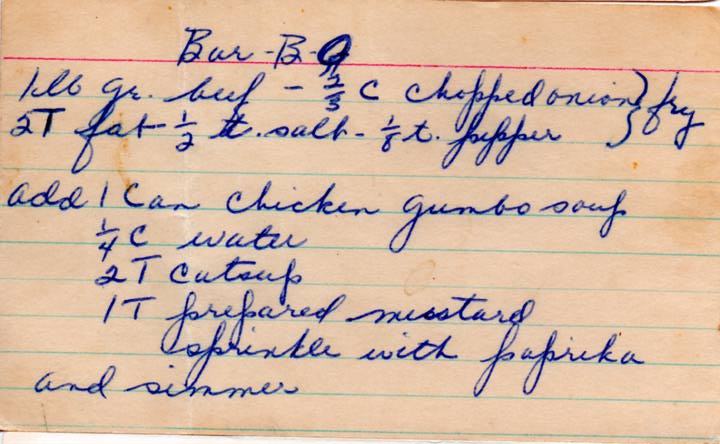 Bar-B-Q
1 lb gr. beef - 2/3 C chopped onion } fry
2T fat - 1/2 t. salt - 1/8 t. pepper
add 1 Can chicken gumbo soup
1/4 C water
2T Catsup
1T prepared mustard
sprinkle with paprika
and simmer